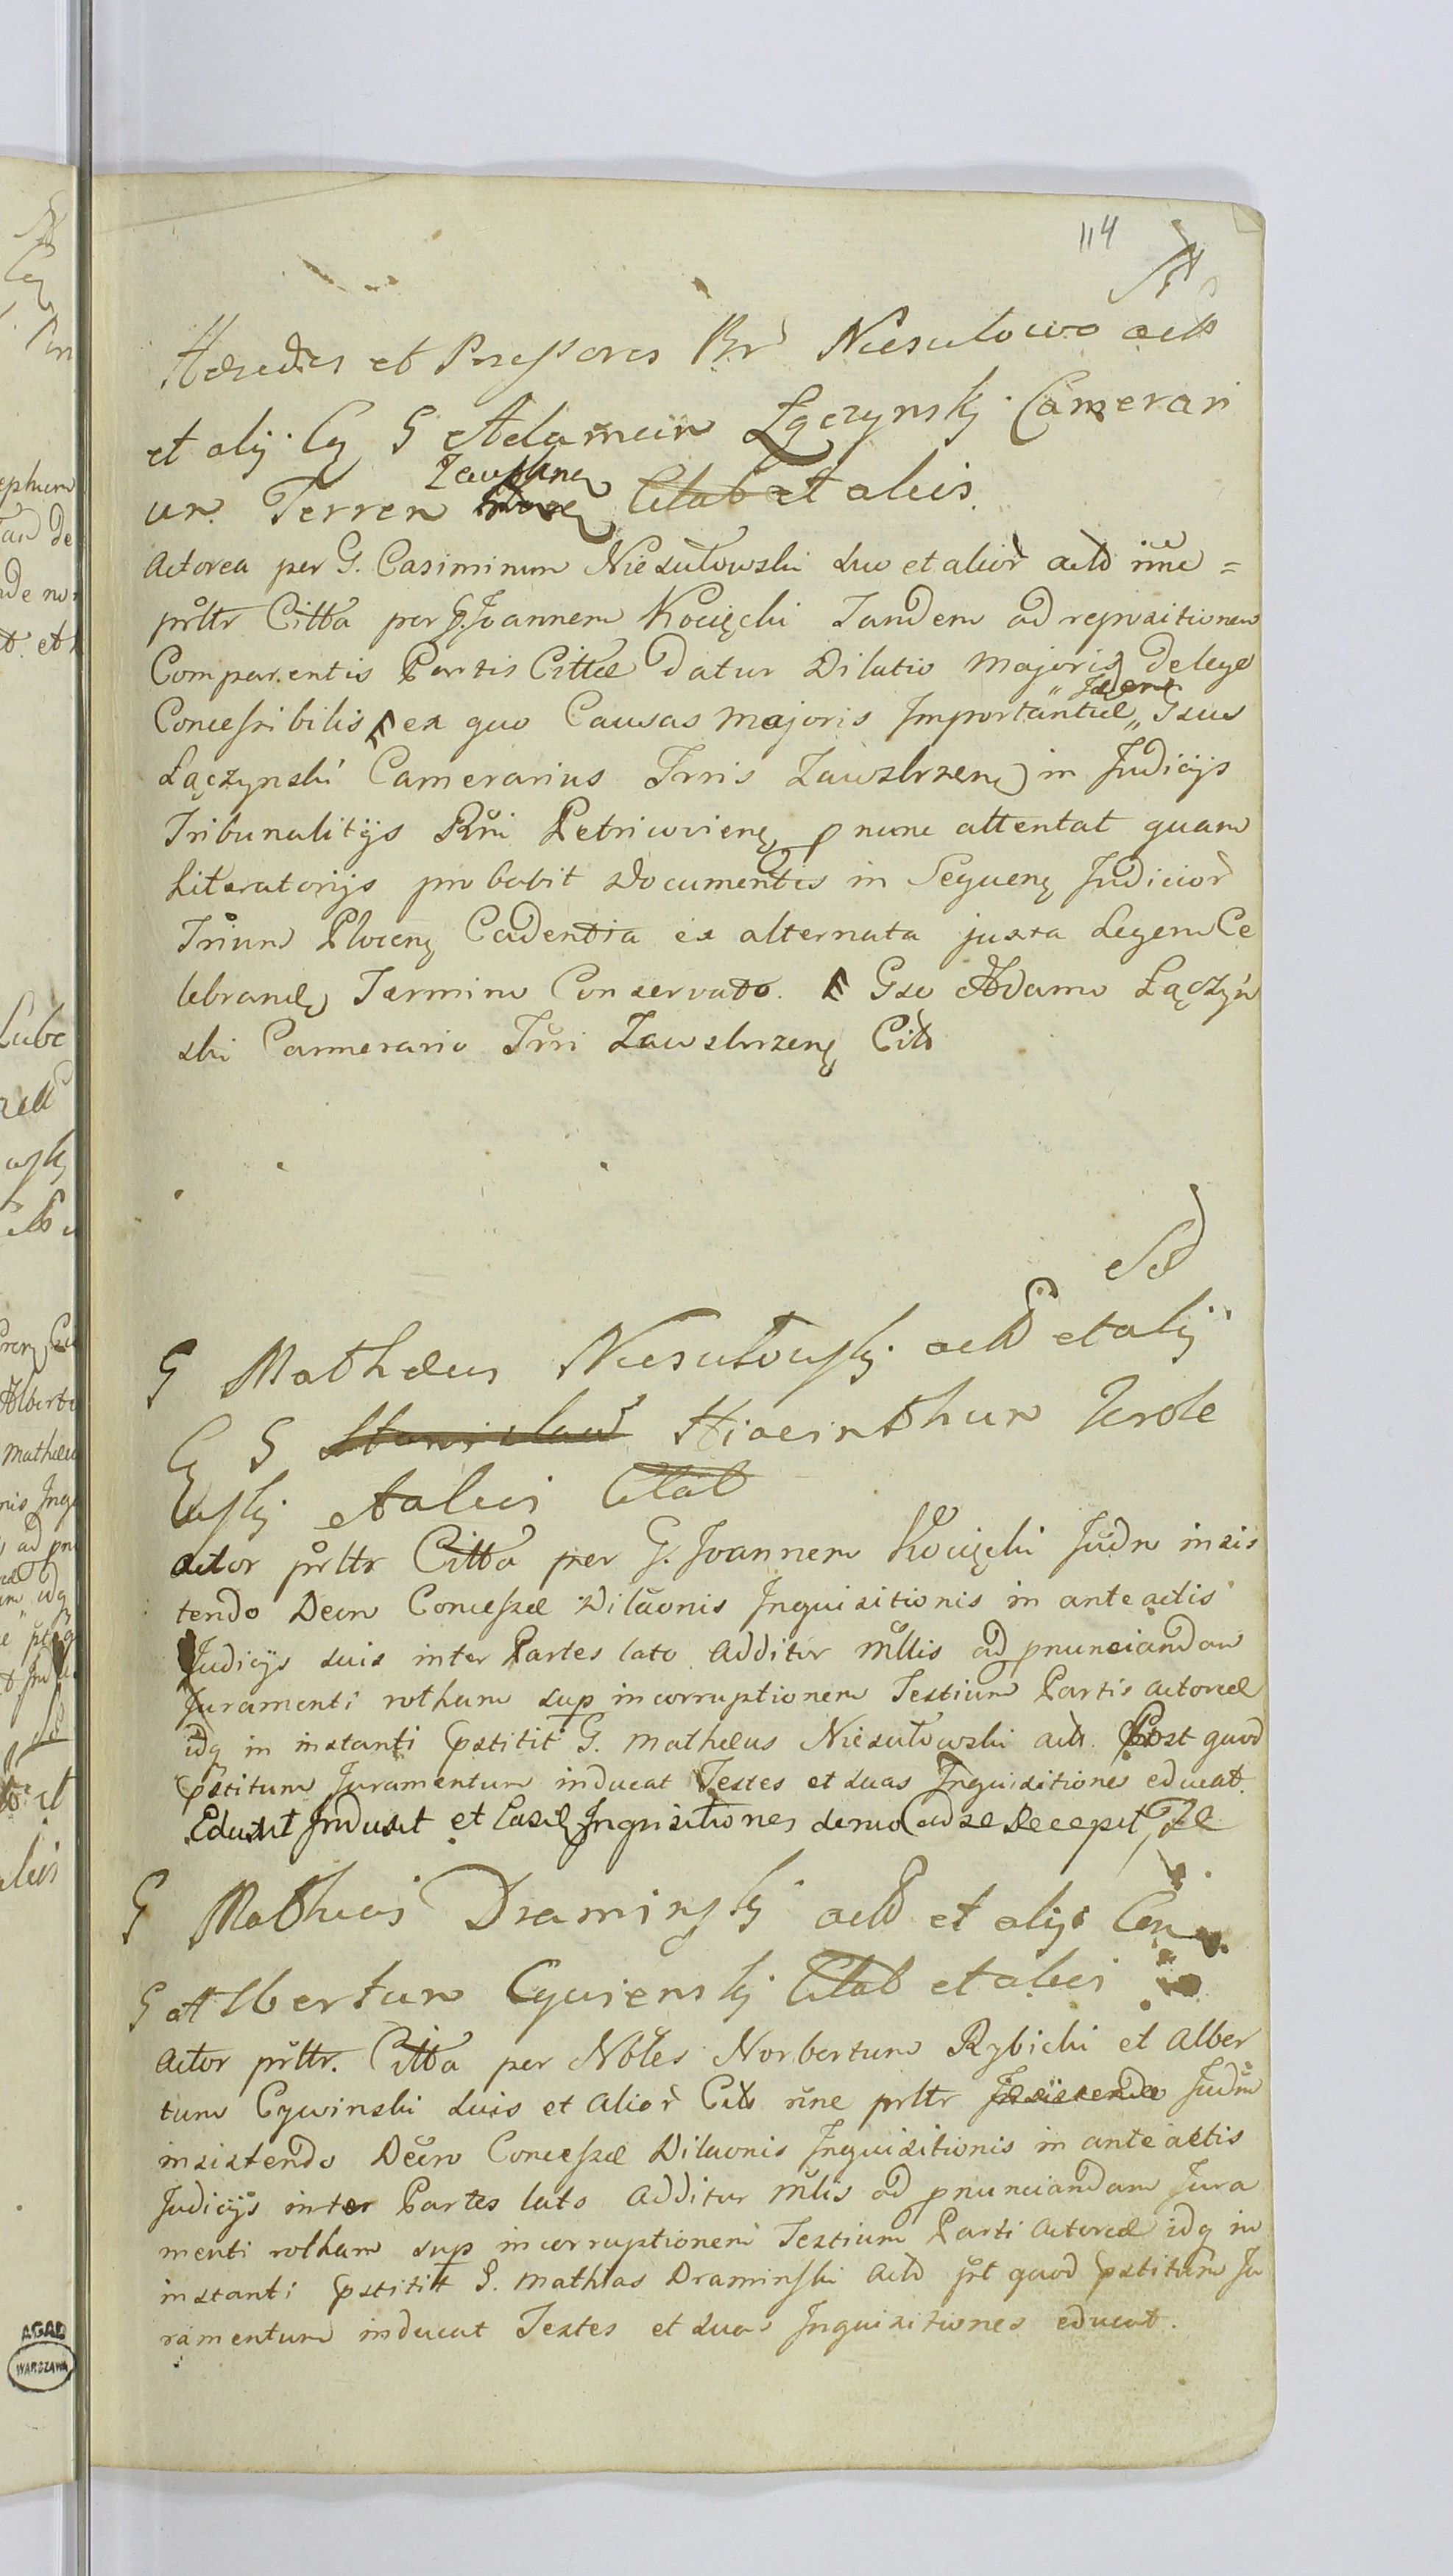 114
Hæredes et Possessores Br Niesułowo act
et alij Cq G Adamum Łączynskj Camerari
um Terren Zawskrzenę Citat et aliis
Actorea per G. Casimirum Niesułowski suo et alior act nne =
prltr Citta per G. Joannem Kocięcki Tandem ad repositionem
Comparentis Partis Cittæ datur Dilatio Majoris de lege
Concessibilis ex quo Causas Majoris Importantiæ " Idem " Gsus
Łączynski Camerarius Trris Zawskrzenę in Judicijs
Tribunalitijs Rni Petricovienę pnunc attentat quam
Literatorijs probabit Documentis in Sequenę Judicior
Trium Plocenę Cadentia ex alternata juxta Legem Ce
lebrandę Termino Conservato. Gso Adamo Łączyn
ski Camerario Trri Zawskrzenę Citt
Sd
G Mathæus Niesułowskj act et alij
Cq G Stanislaum Hiacinthum Umole
wskj et aliis Citat
Actor prltr Citta per G. Joannem Kocięcki Judm insis
tendo Decro Concessæ Dilaonis Inquisitionis in anteactis
Judicijs suis inter Partes lato additur Mllis ad pnunciandam
Juramenti rotham sup incorruptionem Testium Partis Actoreæ
idq in instanti pstitit G. Mathæus Niesułowski act. Post quod
pstitum Juramentum inducat Testes et suas Inquisitiones educat.
Eduxit Induxit et Easdę Inquisitiones denuo ad se Recepit
G Mathias Draminskj act et alij Con
G Albertum Cywienskj Citat et aliis
Actor prltr. Citta per Nobles Norbertum Rybicki et Alber
tum Cywinski suis et alior Citt nne prltr Insistendo Judm
insistendo Decro Concessæ Dilaonis Inquisitionis in anteactis
Judicijs inter Partes lato Additur Mllis ad pnunciandam Jura
menti rotham sup incorruptionem Testium Parti Actoreæ idq in
instanti pstitit G. Mathias Draminski Act pst quod pstitum Ju
ramentum inducat Testes et suas Inquisitiones educat.
AGAD
WARSZAWA